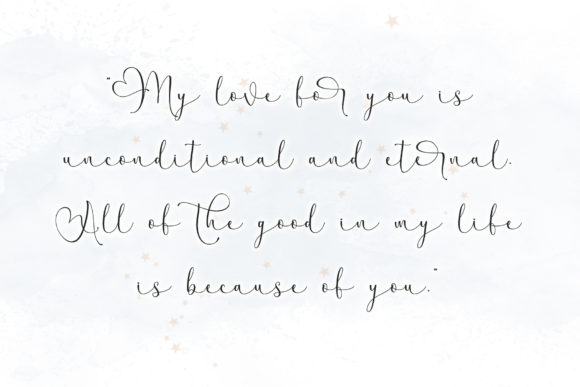 "My love for you is
unconditional and eternal.
All of the good in my life
is because of you."